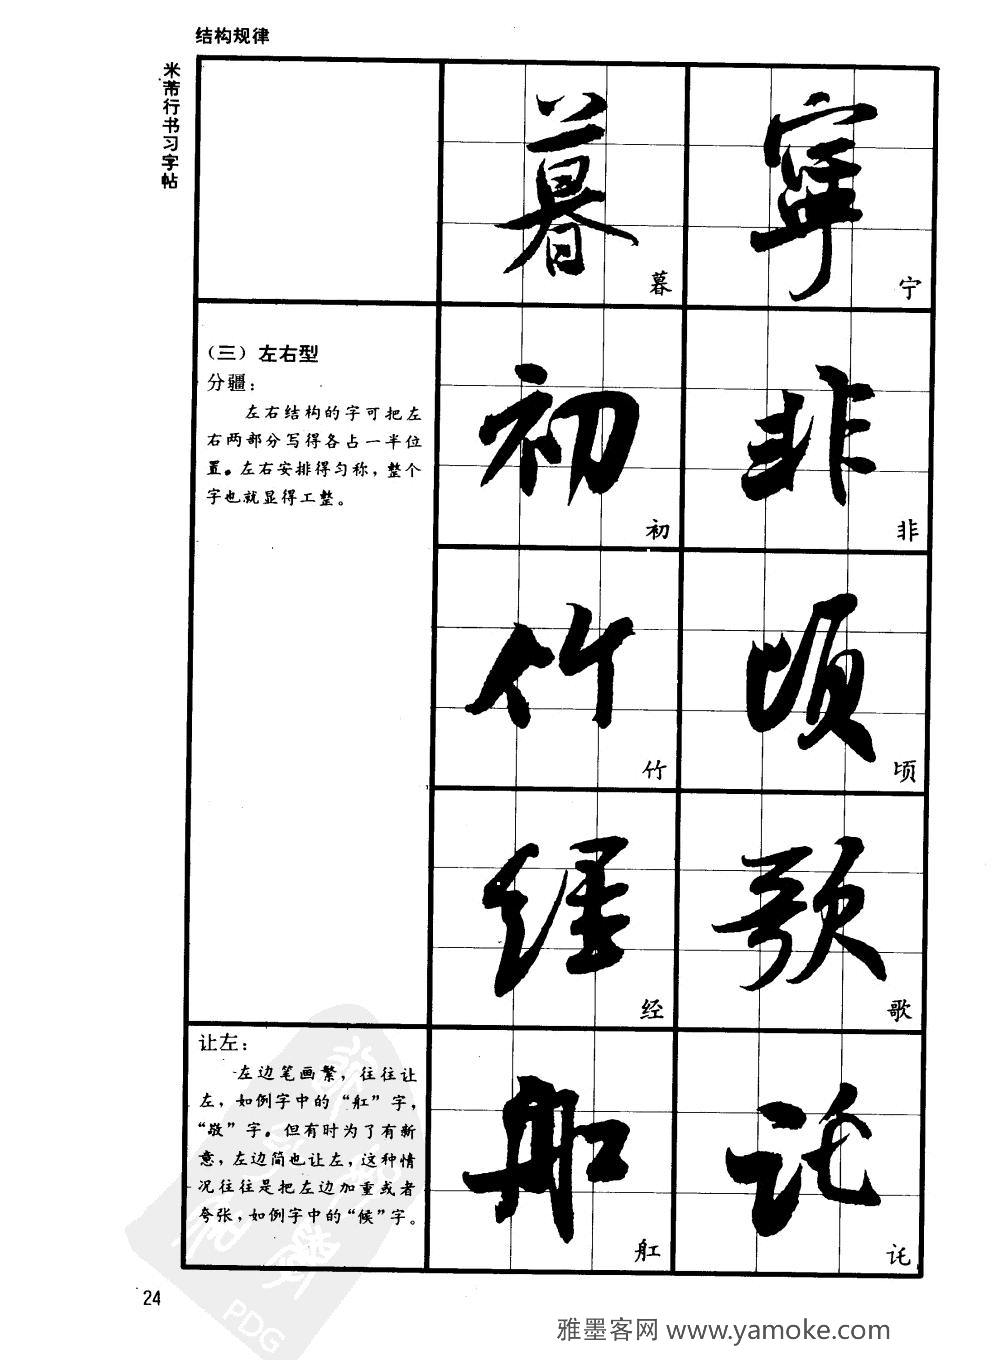 结构规律
米芾行书习字帖
暮
宁
(三)左右型
分疆:
左右结构的字可把左
右两部分写得各占一半位
置。左右安排得匀称,整个
字也就显得工整。
初
非
竹
顷
经
歌
让左:
左边笔画繁,往往让
左,如例字中的“舡”字,
“敬”字。但有时为了有新
意,左边简也让左,这种情
况往往是把左边加重或者
夸张,如例字中的“候”字。
舡
讬
24
PDG
雅墨客网 www.yamoke.com